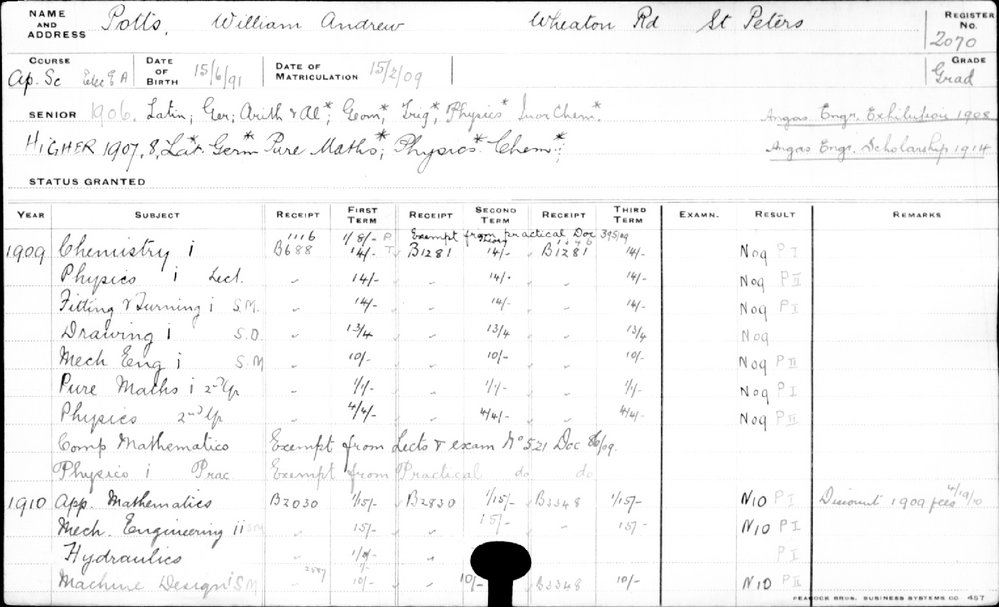 NAME AND ADDRESS Potts, William Andrew Wheaton Rd St Peters REGISTER No. 2070
COURSE Ap. Sc Elec E A DATE OF BIRTH 15/6/91 DATE OF MATRICULATION 15/2/09 GRADE Grad
SENIOR 1906. Latin; Ger; Arith & Al*; Geom*; Trig*; Physics* Inor Chem.* Angas Engr. Exhibition 1908
HIGHER 1907, 8, Lat* Germ* Pure Maths*; Physics* Chem*; Angas Engr. Scholarship 1914
STATUS GRANTED
YEAR SUBJECT RECEIPT FIRST TERM RECEIPT SECOND TERM RECEIPT THIRD TERM EXAMN. RESULT REMARKS
1116 1/8/- P Exempt from practical Doc 395/09
1909 Chemistry i B688 14/- T B1281 14/- B1281 14/- N09 P I
Physics i Lect. " 14/- " 14/- " 14/- N09 P II
Fitting & Turning i S.M. " 14/- " 14/- " 14/- N09 P I
Drawing i S.D. " 13/4 " 13/4 " 13/4 N09
Mech Eng i S.M " 10/- " 10/- " 10/- N09 P II
Pure Maths i 2nd Yr " 1/1/- " 1/1/- " 1/1/- N09 P I
Physics 2nd Yr " 4/4/- " 4/4/- " 4/4/- N09 P II
Comp Mathematics Exempt from Lects & exam No 521 Doc /09.
Physics i Prac Exempt from Practical do do
1910 App. Mathematics B2030 1/15/- B2830 1/15/- B3348 1/15/- N10 P I Discount 1909 fees 4/10/10
Mech. Engineering ii S.M " 15/- " 15/- " 15/- N10 P I
Hydraulics " " P I
Machine Design i S.M 2587 10/- " 10/- B3348 10/- N10 P II
PEACOCK BROS. BUSINESS SYSTEMS CO 457